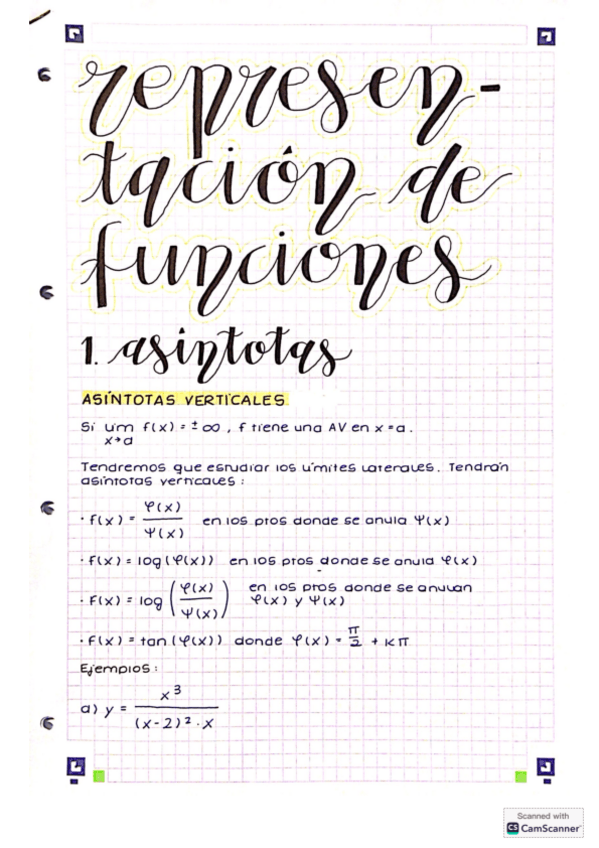 represen-
tación de
funciones
1. asíntotas
ASÍNTOTAS VERTICALES
Si lim f(x) = ±∞, f tiene una AV en x=a.
x→a
Tendremos que estudiar los límites laterales. Tendrán
asíntotas verticales:
· f(x) = φ(x)/ψ(x) en los ptos donde se anula ψ(x)
· f(x) = log(φ(x)) en los ptos donde se anula φ(x)
· f(x) = log(φ(x)/ψ(x)) en los ptos donde se anulan
φ(x) y ψ(x)
· f(x) = tan(φ(x)) donde φ(x) = π/2 + kπ
Ejemplos:
a) y = x³/((x-2)²·x)
Scanned with
CS CamScanner